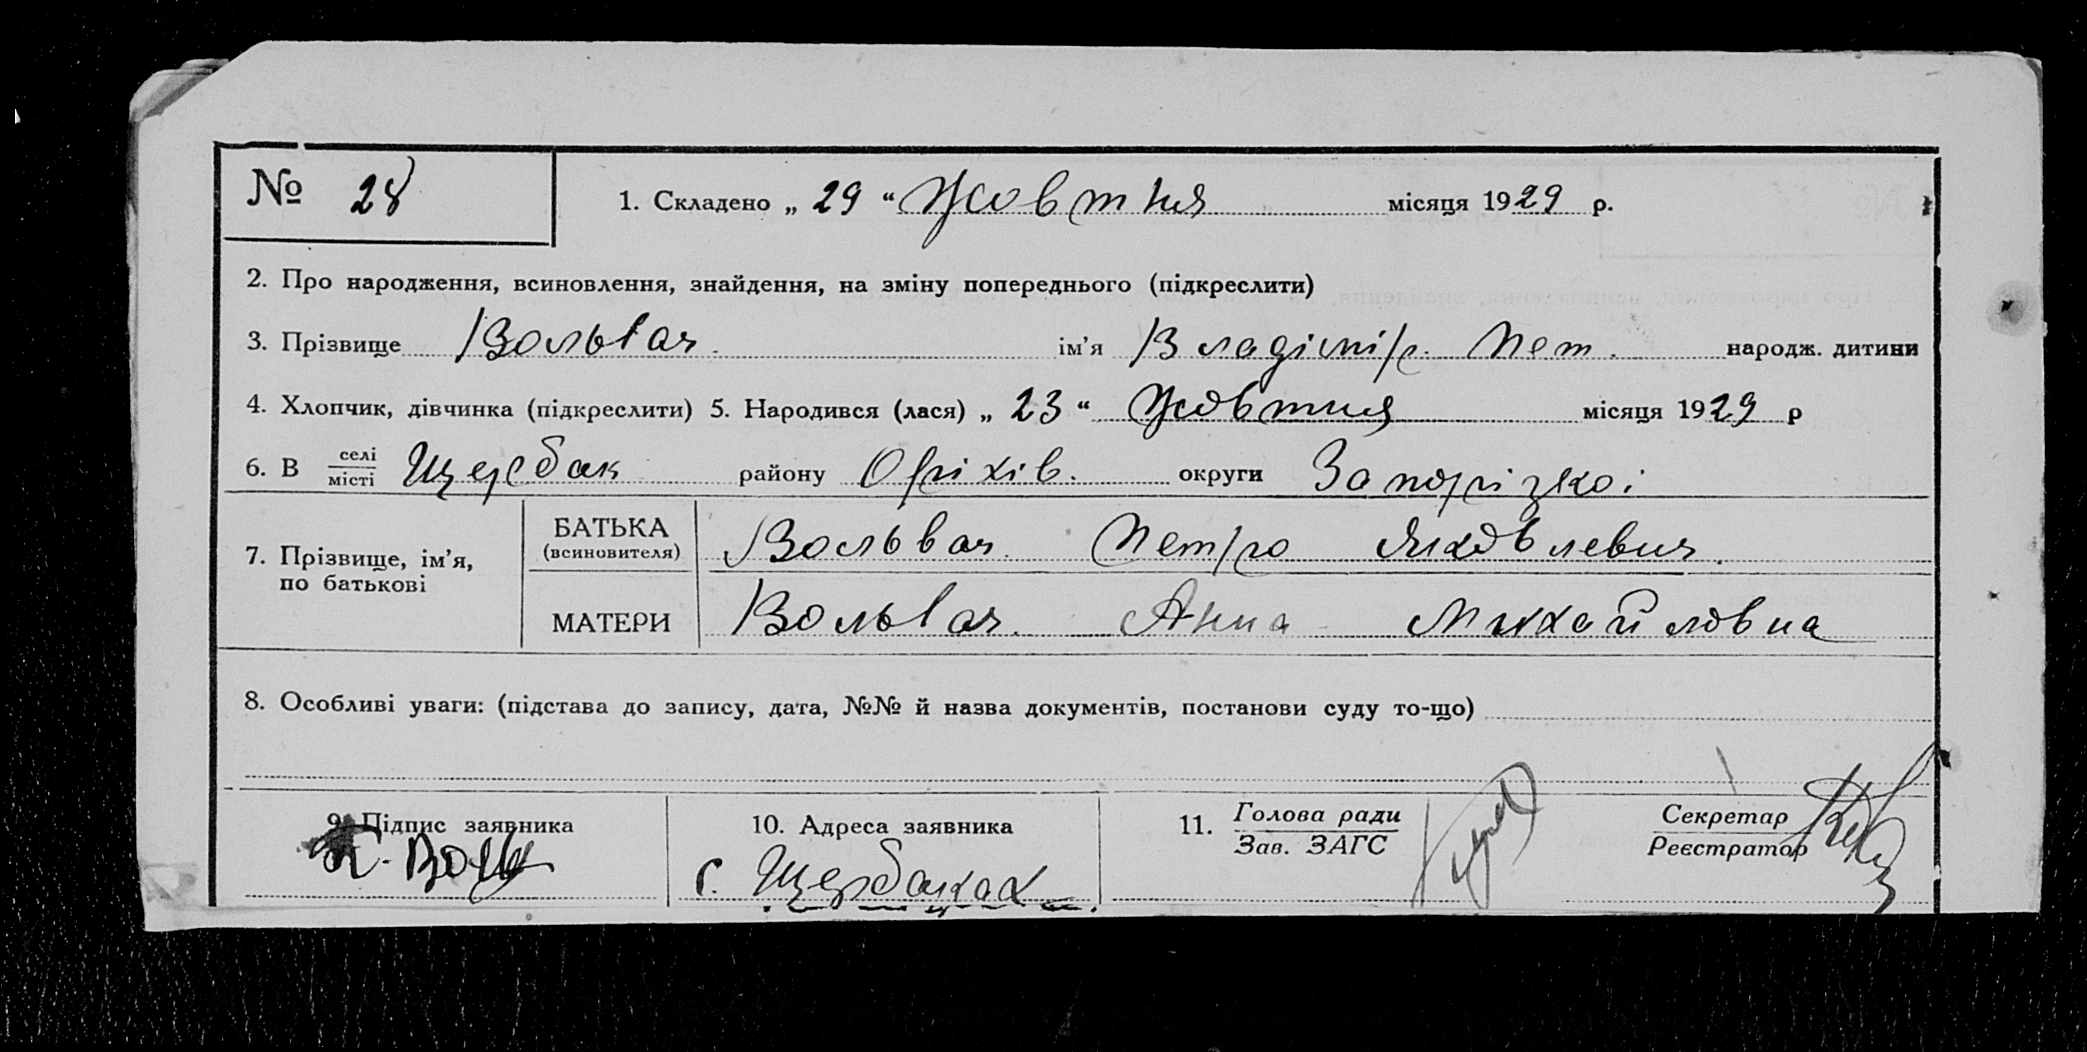 № 28
1. Складено „ 29 “ Жовтня місяця 1929 р.
2. Про народження, всиновлення, знайдення, на зміну попереднього (підкреслити)
3. Прізвище Вольвач. ім’я Владімір. Пет. народж. дитини
4. Хлопчик, дівчинка (підкреслити) 5. Народився (лася) „ 23 “ Жовтня місяця 1929 р
6. В селі місті Щербак району Оріхів. округи Запорізкоі
7. Прізвище, ім’я, по батькові
БАТЬКА (всиновителя) Вольвач. Петро Яковлевич.
МАТЕРИ Вольвач. Анна Михайловна
8. Особливі уваги: (підстава до запису, дата, №№ й назва документів, постанови суду то-що)
9. Підпис заявника
10. Адреса заявника
с. Щербаках
11. Голова ради
Зав. ЗАГС
Секретар
Реєстратор